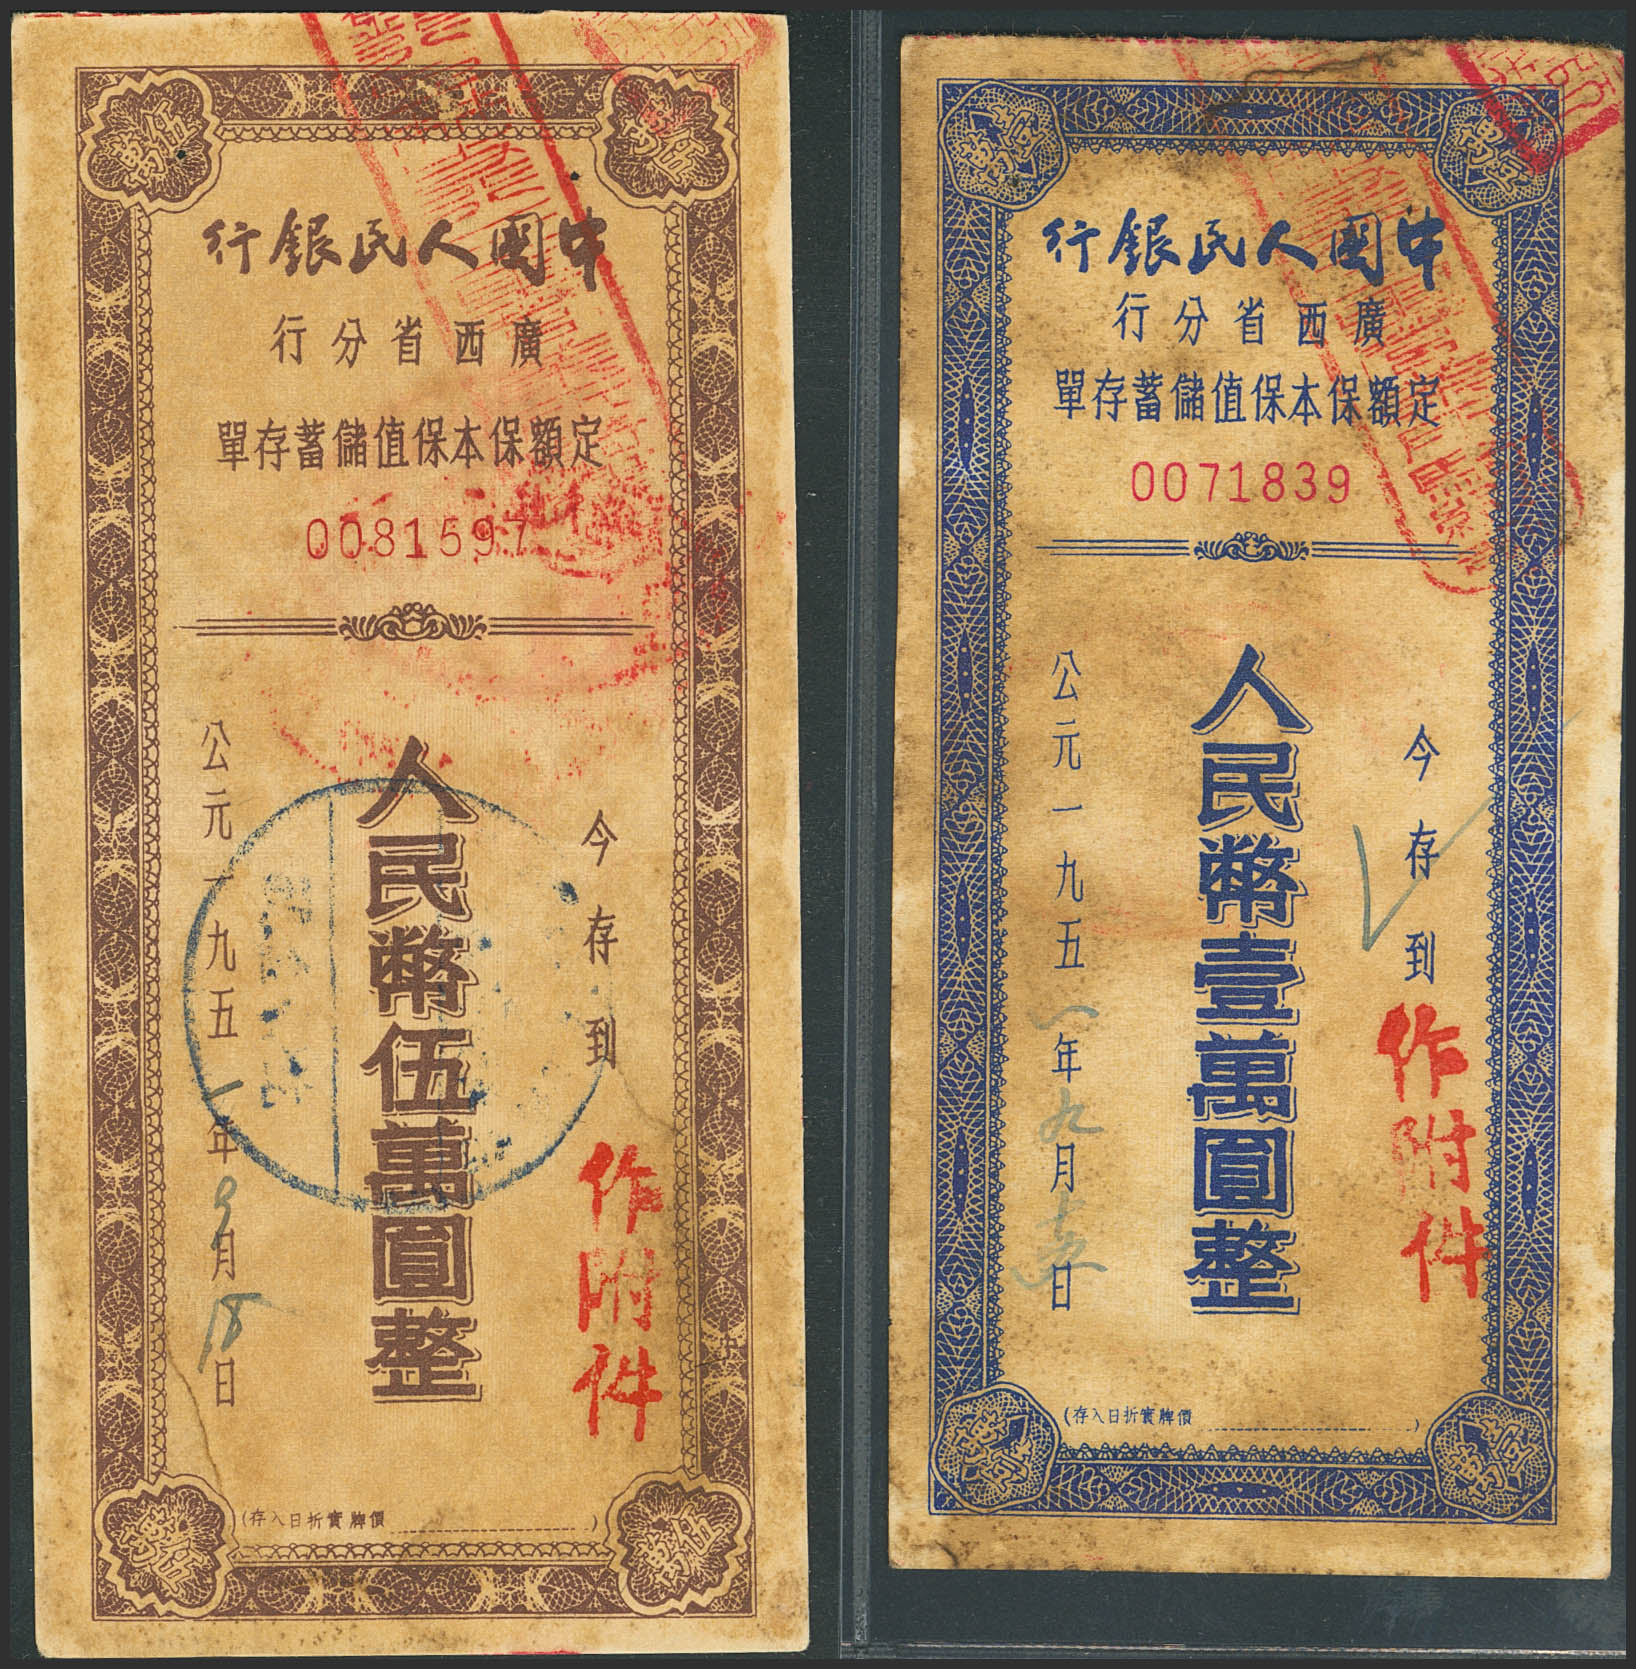 伍萬
伍萬
中國人民銀行
廣西省分行
定額保本保值儲蓄存單
0081597
今存到
作附件
人民幣伍萬圓整
公元一九五一年9月18日
(存入日折實牌價 )
伍萬
伍萬
壹萬
壹萬
中國人民銀行
廣西省分行
定額保本保值儲蓄存單
0071839
今存到
作附件
人民幣壹萬圓整
公元一九五一年九月十五日
(存入日折實牌價 )
壹萬
壹萬